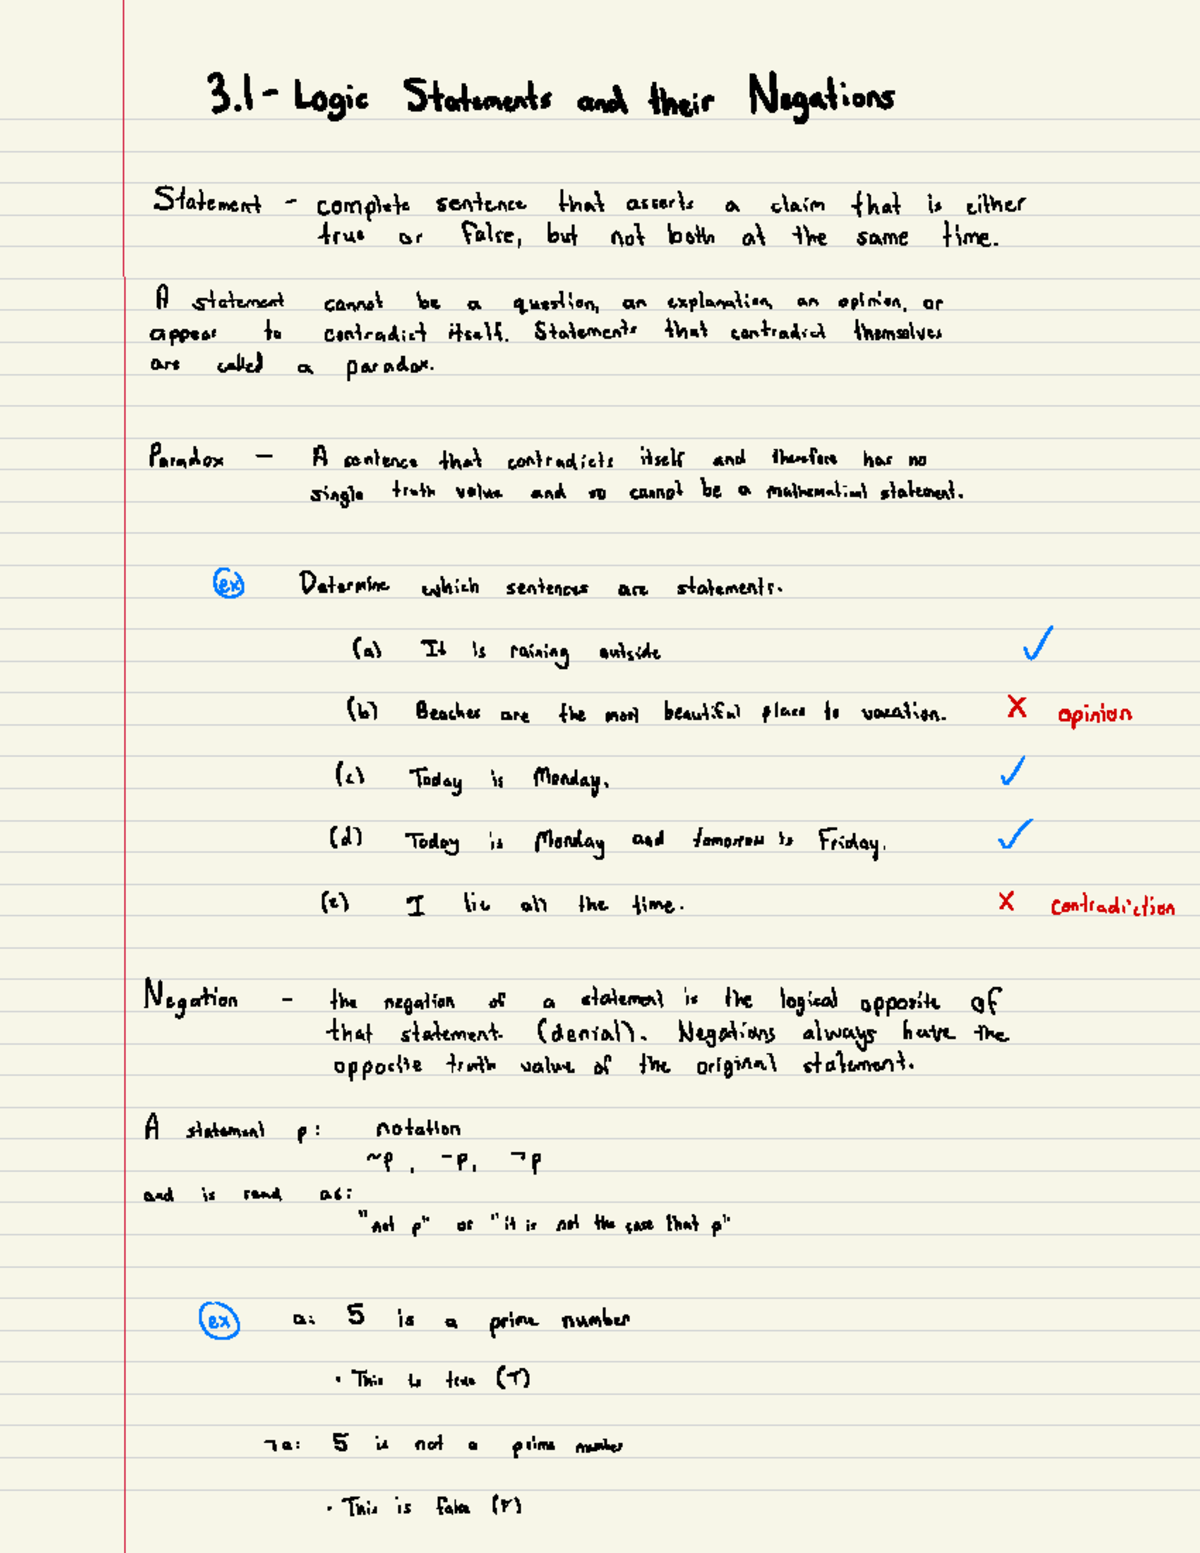 3.1 - Logic Statements and their Negations
Statement - complete sentence that asserts a claim that is either
true or false, but not both at the same time.
A statement cannot be a question, an explanation, an opinion, or
appear to contradict itself. Statements that contradict themselves
are called a paradox.
Paradox - A sentence that contradicts itself and therefore has no
single truth value and so cannot be a mathematical statement.
ex Determine which sentences are statements.
(a) It is raining outside ✓
(b) Beaches are the most beautiful place to vacation. X opinion
(c) Today is Monday. ✓
(d) Today is Monday and tomorrow is Friday. ✓
(e) I lie all the time. X contradiction
Negation - the negation of a statement is the logical opposite of
that statement (denial). Negations always have the
opposite truth value of the original statement.
A statement p: notation
~p, -p, ¬p
and is read as:
"not p" or "it is not the case that p"
ex a: 5 is a prime number
• This is true (T)
¬a: 5 is not a prime number
• This is false (F)